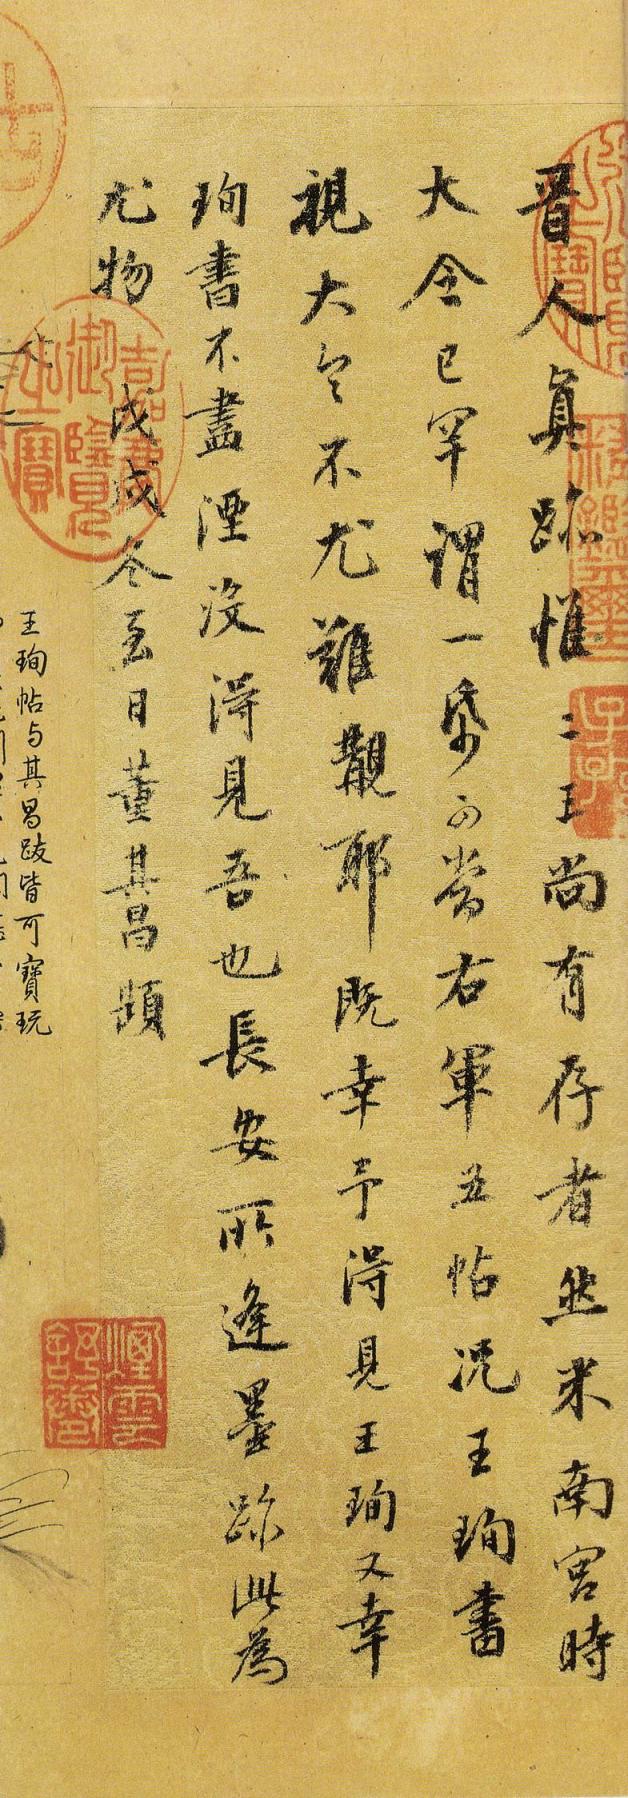 晋人真跡惟二王尚有存者然米南宮時
大令已罕謂一帋可當右軍五帖況王珣書
視大令不尤難覯耶既幸予得見王珣又幸
珣書不盡湮没得見吾也長安所逢墨跡此為
尤物 戊戌冬至日董其昌題
王珣帖与其昌跋皆可寶玩
嘉慶御覽之寶
煙雲